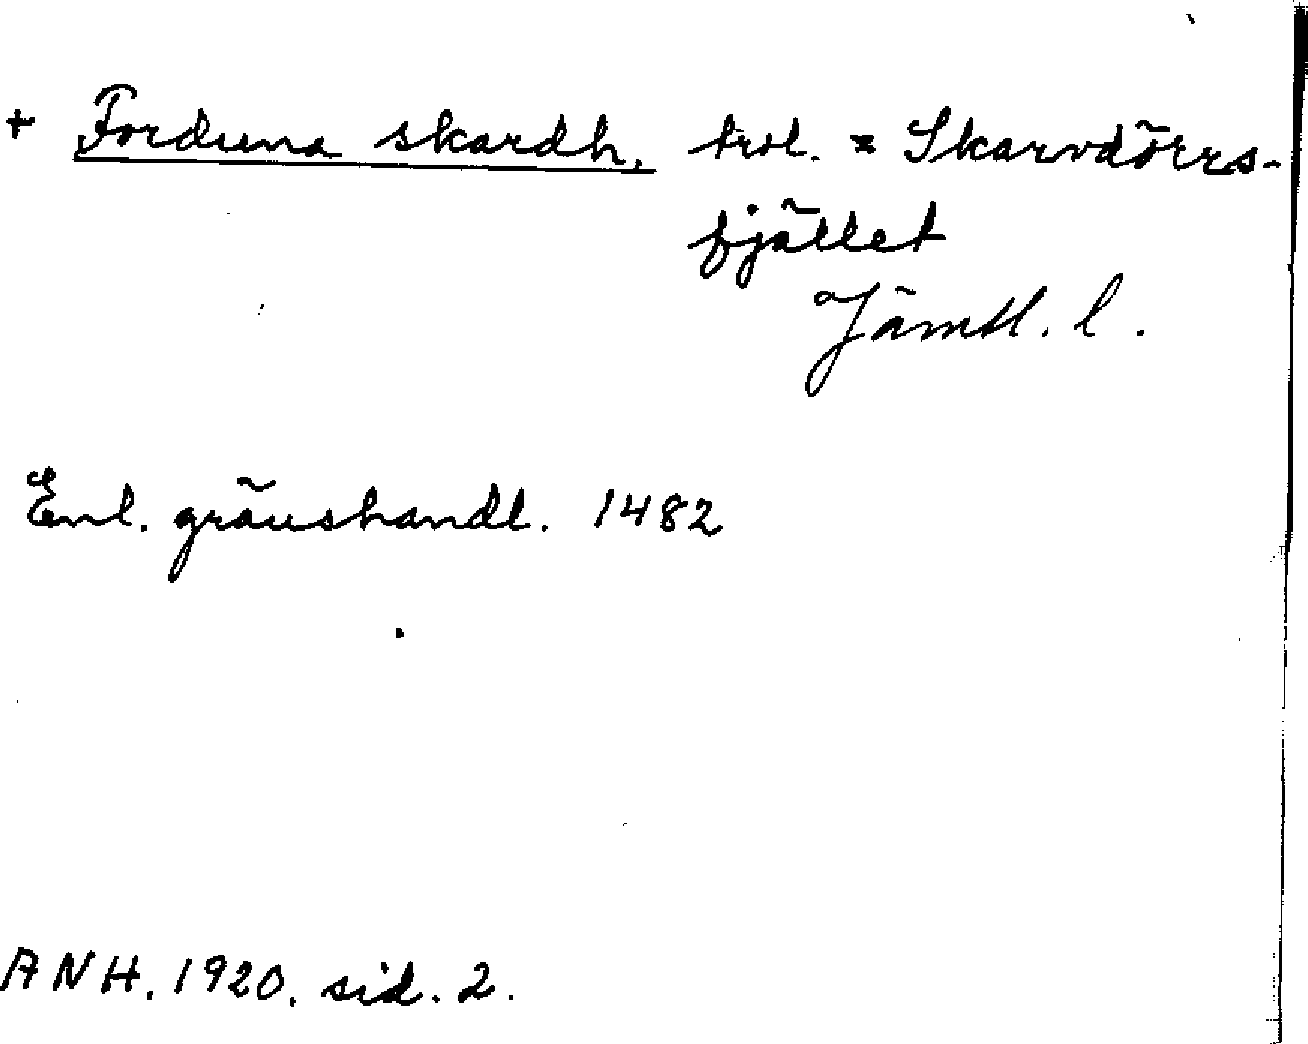 + Forduna skardh, trol. = Skarvdörrs-
fjället
Jämtl. l.
Enl. gränshandl. 1482
ANH. 1920. sid. 2.